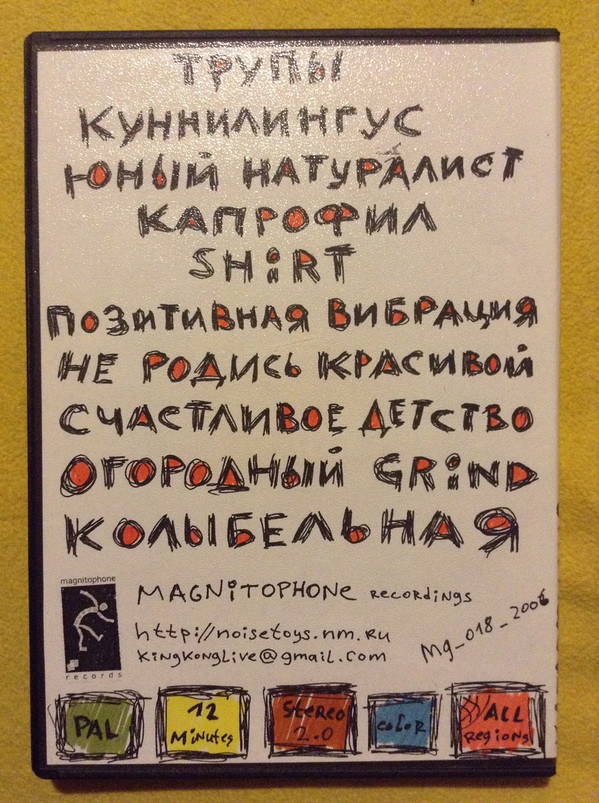 ТРУПЫ
КУННИЛИНГУС
ЮНЫЙ НАТУРАЛИСТ
КАПРОФИЛ
SHiRT
ПОЗИТИВНАЯ ВИБРАЦИЯ
НЕ РОДИСЬ КРАСИВОЙ
СЧАСТЛИВОЕ ДЕТСТВО
ОГОРОДНЫЙ GRiND
КОЛЫБЕЛЬНАЯ
magnitophone
records
MAGNiTOPHONe recordings
http://noisetoys.nm.ru
kingkonglive@gmail.com
Mg_018_2006
PAL
12 Minutes
Stereo 2.0
coLoR
ALL Regions